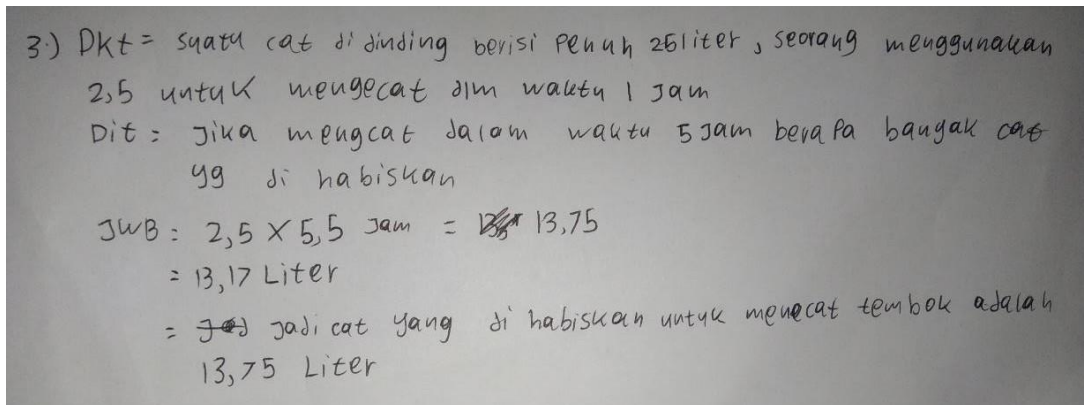 3.) Dkt = suatu cat di dinding berisi penuh 25 liter, seorang menggunakan
2,5 untuk mengecat dlm waktu 1 Jam
Dit : Jika mengcat dalam waktu 5 Jam berapa banyak cat
yg di habiskan
JWB : 2,5 X 5,5 Jam = 13,75
= 13,17 Liter
= Jadi cat yang di habiskan untuk menecat tembok adalah
13,75 Liter